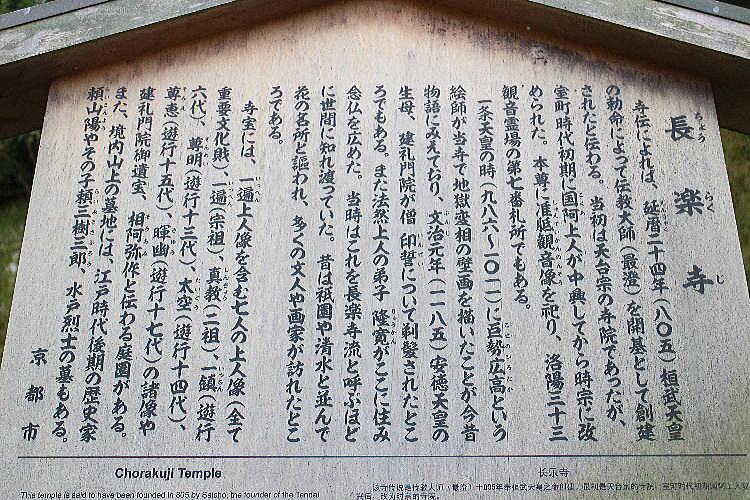 長楽寺
ちょうらくじ
寺伝によれば、延暦二十四年（八〇五）桓武天皇
の勅命によって伝教大師（最澄）を開基として創建
されたと伝わる。当初は天台宗の寺院であったが、
室町時代初期に国阿上人が中興してから時宗に改
められた。本尊に准胝観音像を祀り、洛陽三十三
観音霊場の第七番札所でもある。
一条天皇の時（九八六～一〇一一）に巨勢広高という
絵師が当寺で地獄変相の壁画を描いたことが今昔
物語にみえており、文治元年（一一八五）安徳天皇の
生母、建礼門院が僧 印誓について剃髪されたとこ
ろでもある。また法然上人の弟子 隆寛がここに住み
念仏を広めた。当時はこれを長楽寺流と呼ぶほど
に世間に知れ渡っていた。昔は祇園や清水と並んで
花の名所と謳われ、多くの文人や画家が訪れたとこ
ろである。
寺宝には、一遍上人像を含む七人の上人像（全て
重要文化財）、一遍（宗祖）、真教（二祖）、一鎮（遊行
六代）、尊明（遊行十三代）、太空（遊行十四代）、
尊恵（遊行十五代）、暉幽（遊行十七代）の諸像や
建礼門院御遺宝、相阿弥作と伝わる庭園がある。
また、境内山上の墓地には、江戸時代後期の歴史家
頼山陽やその子頼三樹三郎、水戸烈士の墓もある。
京都市
Chorakuji Temple
This temple is said to have been founded in 805 by Saicho, the founder of the Tendai
长乐寺